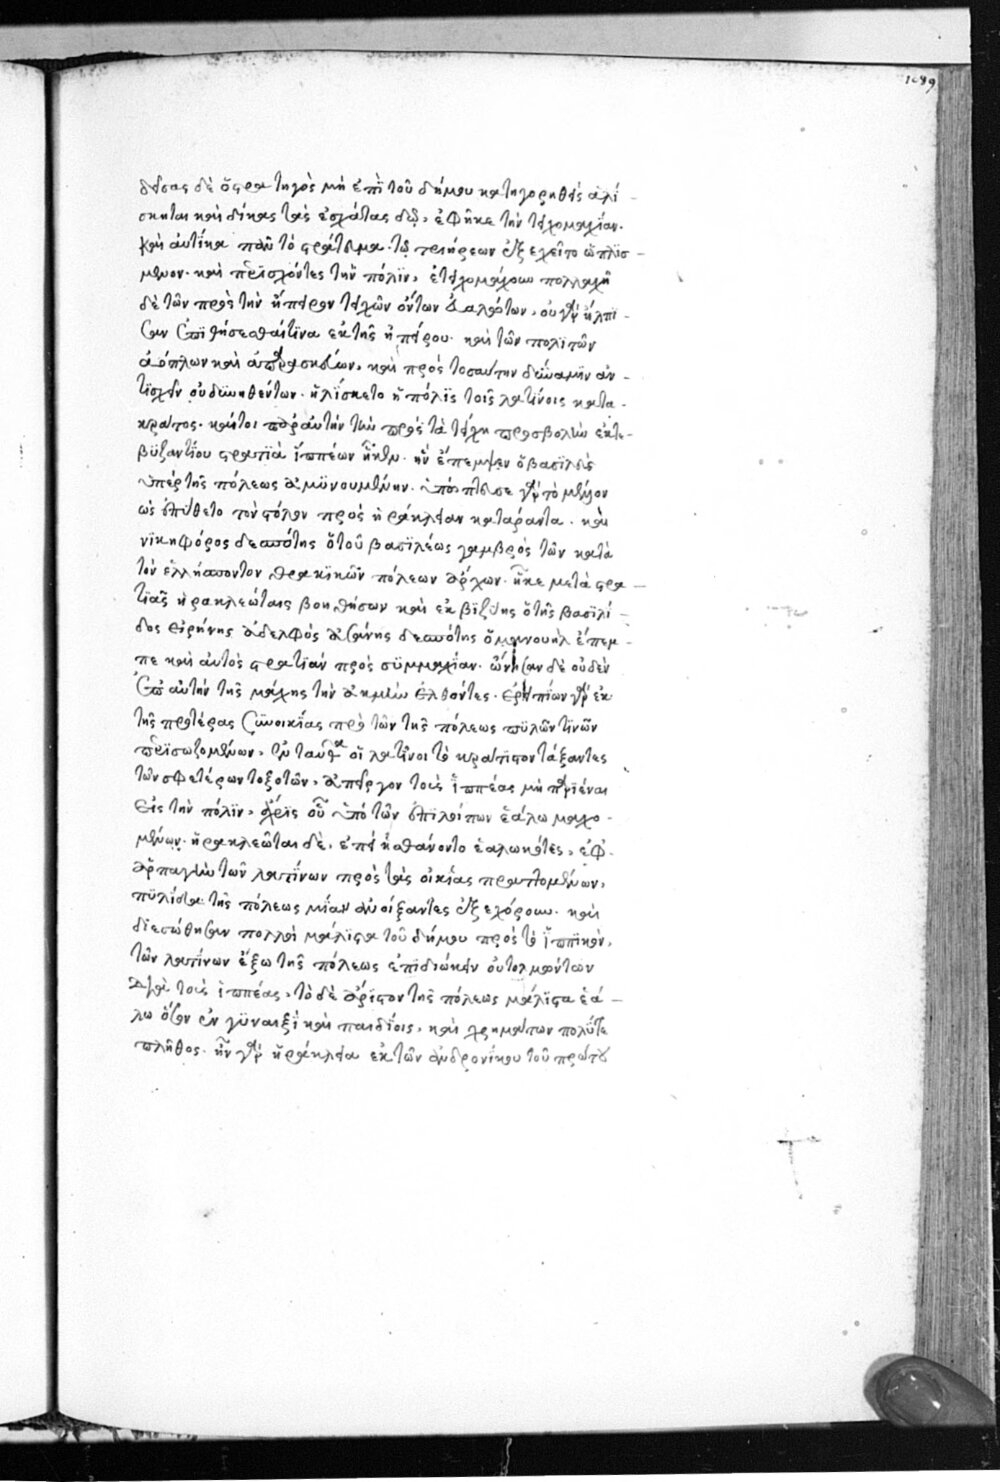 1089
δείσας δὲ ὁ στρατηγὸς μὴ ἐπὶ τοῦ δήμου κατηγορηθεὶς ἁλί-
σκηται καὶ δίκας τὰς ἐσχάτας δῷ, ἐφῆκε τὴν τειχομαχίαν.
καὶ αὐτίκα πᾶν τὸ στράτευμα τῶν τριήρεων ἐξεχεῖτο ὡπλισ-
μένον. καὶ περισχόντες τὴν πόλιν, ἐτειχομάχουν πολλαχῆ
δὲ τῶν πρὸς τὴν ἤπειρον τειχῶν ὄντων χαλώντων, οὐ γὰρ ἤλπι-
σαν ἐπιθήσεσθαί τινα ἐκ τῆς ἠπείρου. καὶ τῶν πολιτῶν
ἀόπλων καὶ ἀπαρασκεύων, καὶ πρὸς τοσαύτην δύναμιν ἀν-
τισχεῖν οὐ δυνηθέντων. ἡλίσκετο ἡ πόλις τοῖς λατίνοις κατα-
κράτος. καίτοι παρ' αὐτὴν τὴν πρὸς τὰ τείχη προσβολὴν ἐκ τε
βυζαντίου στρατιὰ ἱππέων ἧκεν. ἣν ἔπεμψεν ὁ βασιλεὺς
ὑπὲρ τῆς πόλεως ἀμυνουμένην. ὑπόπτευσε γὰρ τὸ μέλλον
ὡς ἐπύθετο τὸν στόλον πρὸς ἡράκλειαν κατάραντα. καὶ
νικηφόρος δεσπότης ὁ τοῦ βασιλέως γαμβρὸς τῶν κατὰ
τὸν ἑλλήσποντον θρακικῶν πόλεων ἄρχων. ἧκε μετὰ στρα-
τιᾶς ἡρακλεώταις βοηθήσων καὶ ἐκ βιζύης ὁ τῆς βασιλί-
δος εἰρήνης ἀδελφὸς ἀσάνης δεσπότης ὁ μανουὴλ ἔπεμ-
πε καὶ αὐτὸς στρατιὰν πρὸς συμμαχίαν. ὤνησαν δὲ οὐδὲν
ἐπ' αὐτὴν τῆς μάχης τὴν ἀκμὴν ἐλθόντες. ἐρειπίων γὰρ ἐκ
τῆς προτέρας συνοικίας πρὸ τῶν τῆς πόλεως πυλῶν τινῶν
περισωζομένων, ἐνταῦθα οἱ λατῖνοι τὸ κράτιστον τάξαντες
τῶν σφετέρων τοξοτῶν, ἀπεῖργον τοὺς ἱππέας μὴ παριέναι
εἰς τὴν πόλιν, ἄχρις οὗ ὑπὸ τῶν ἐπιλοίπων ἑάλω μαχο-
μένων. ἡρακλεῶται δὲ, ἐπεὶ ᾐσθάνοντο ἑαλωκότες, ἐφ'
ἁρπαγὴν τῶν λατίνων πρὸς τὰς οἰκίας τραπομένων,
πυλίδα τῆς πόλεως μίαν ἀνοίξαντες ἐξεχώρουν. καὶ
διεσώθησαν πολλοὶ μάλιστα τοῦ δήμου πρὸς τὸ ἱππικὸν,
τῶν λατίνων ἔξω τῆς πόλεως ἐπιδιώκειν οὐ τολμώντων
διὰ τοὺς ἱππέας, τὸ δὲ ἄριστον τῆς πόλεως μάλιστα ἑά-
λω ὅσον ἐν γυναιξὶ καὶ παιδίοις, καὶ χρημάτων πολύ τε
πλῆθος. ἦν γὰρ ἡράκλεια ἐκ τῶν ἀνδρονίκου τοῦ πρώτου